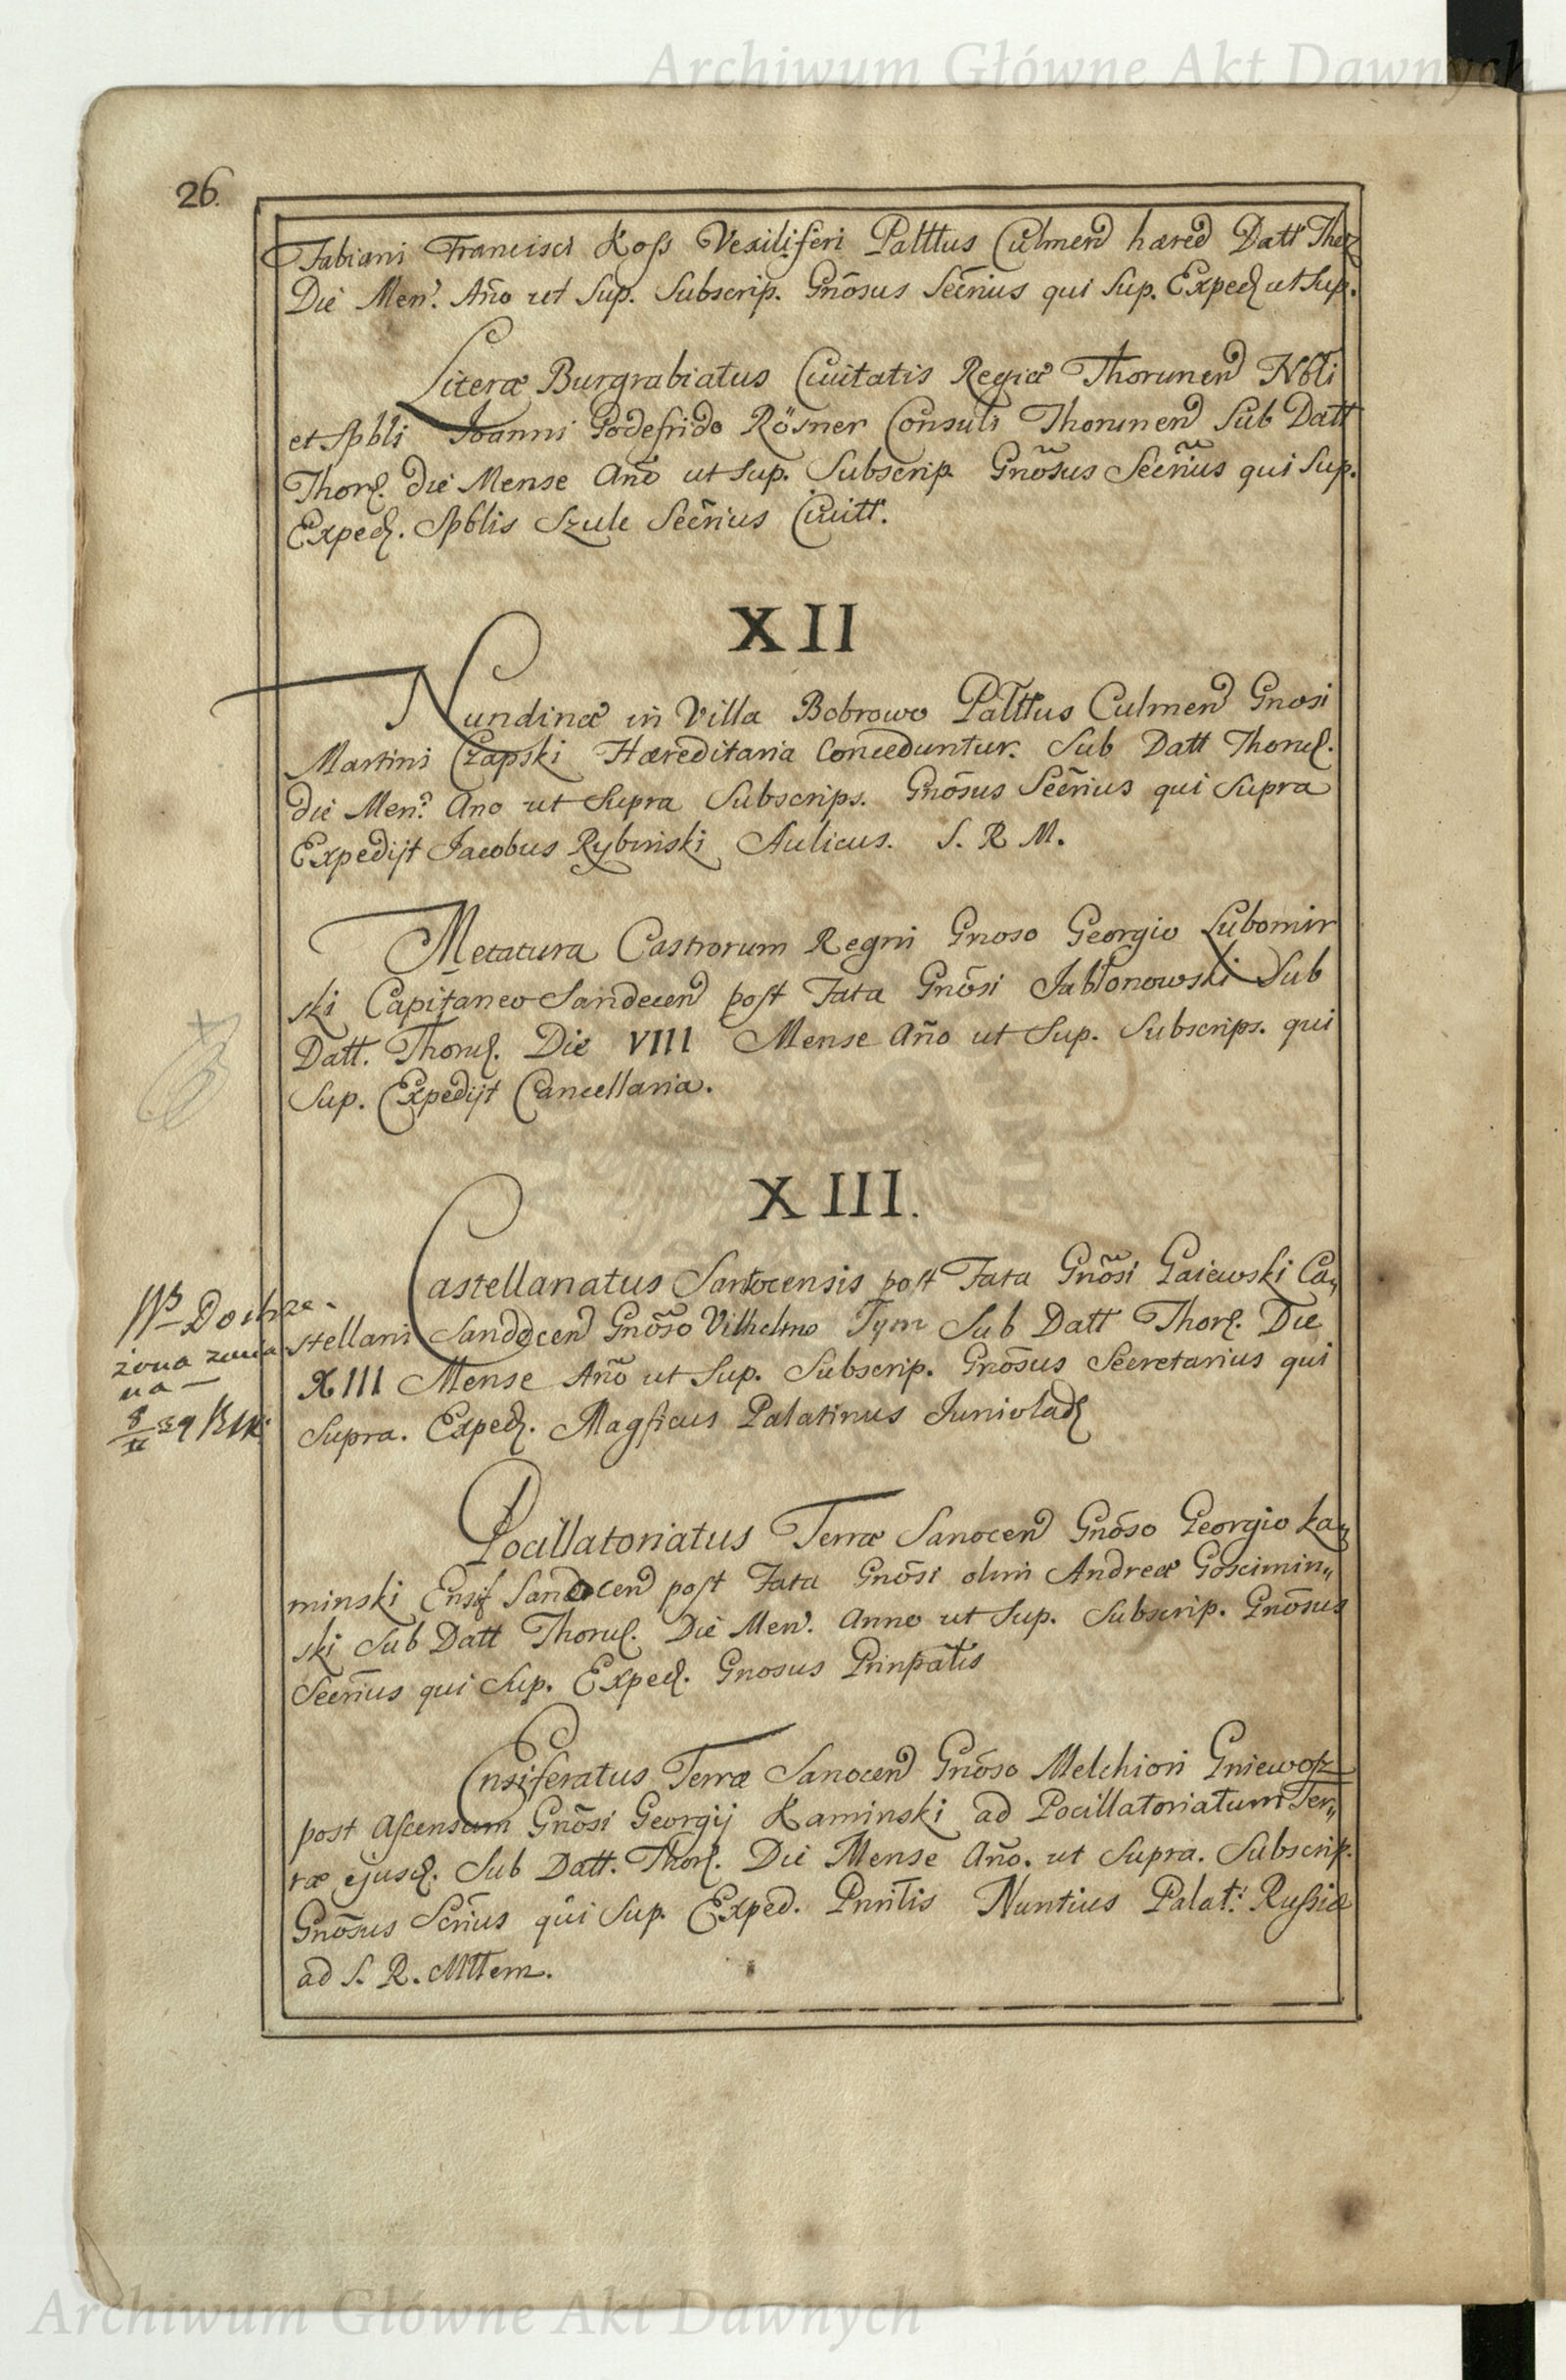 Archiwum Główne Akt Dawnych
26.
Fabiani Francisci Koss Vexiliferi Palttus Culmen hæred Datt Thor
Die Men. Año ut Sup. Subscrip. Gnõsus Secrius qui Sup. Exped ut Sup.
Literæ Burgrabiatus Civitatis Regiæ Thorunen Nbli
et Spbli Ioanni Godefrido Rösner Consuli Thorunen Sub Datt
Thor. die Mense Anõ ut Sup. Subscrip. Gnõsus Secrius qui Sup.
Exped. Spblis Szule Secrius Civitt.
XII
Nundinæ in Villa Bobrowo Palttus Culmen Gnosi
Martini Czapski Hæreditaria Conceduntur. Sub Datt Thoru.
die Men. Ano ut Supra Subscrips. Gnõsus Secrius qui Supra
Expedijt Jacobus Rybinski Aulicus. S. R M.
Metatura Castrorum Regni Gnoso Georgio Lubomir
ski Capitaneo Sandecen post Fata Gnõsi Jabłonowski Sub
Datt. Thoru. Die VIII Mense Año ut Sup. Subscrips. qui
Sup. Expedijt Cancellaria.
XIII.
Castellanatus Santocensis post Fata Gnõsi Gaiewski Ca„
stellani Sandocen Gnõso Vilhelmo Tym Sub Datt Thor. Die
XIII Mense Año ut Sup. Subscrip. Gnõsus Secretarius qui
Supra. Exped. Magficus Palatinus Junivlad
Pocillatoriatus Terræ Sanocen Gnõso Georgio Ka„
minski Ensif Sanocen post Fata Gnõsi olim Andreæ Goscimin„
ski Sub Datt Thoru. Die Men. Anno ut Sup. Subscrip. Gnõsus
Secrius qui Sup. Exped. Gnosus Prinpalis
Ensiferatus Terræ Sanocen Gnõso Melchiori Gniewosz
post Ascensum Gnõsi Georgij Kaminski ad Pocillatoriatum Ter„
ræ ejusd. Sub Datt. Thor. Die Mense Año. ut Supra. Subscrip.
Gnõsus Scrius qui Sup. Exped. Prinlis Nuntius Palat: Russiæ
ad S. R. Mttem.
Archiwum Główne Akt Dawnych